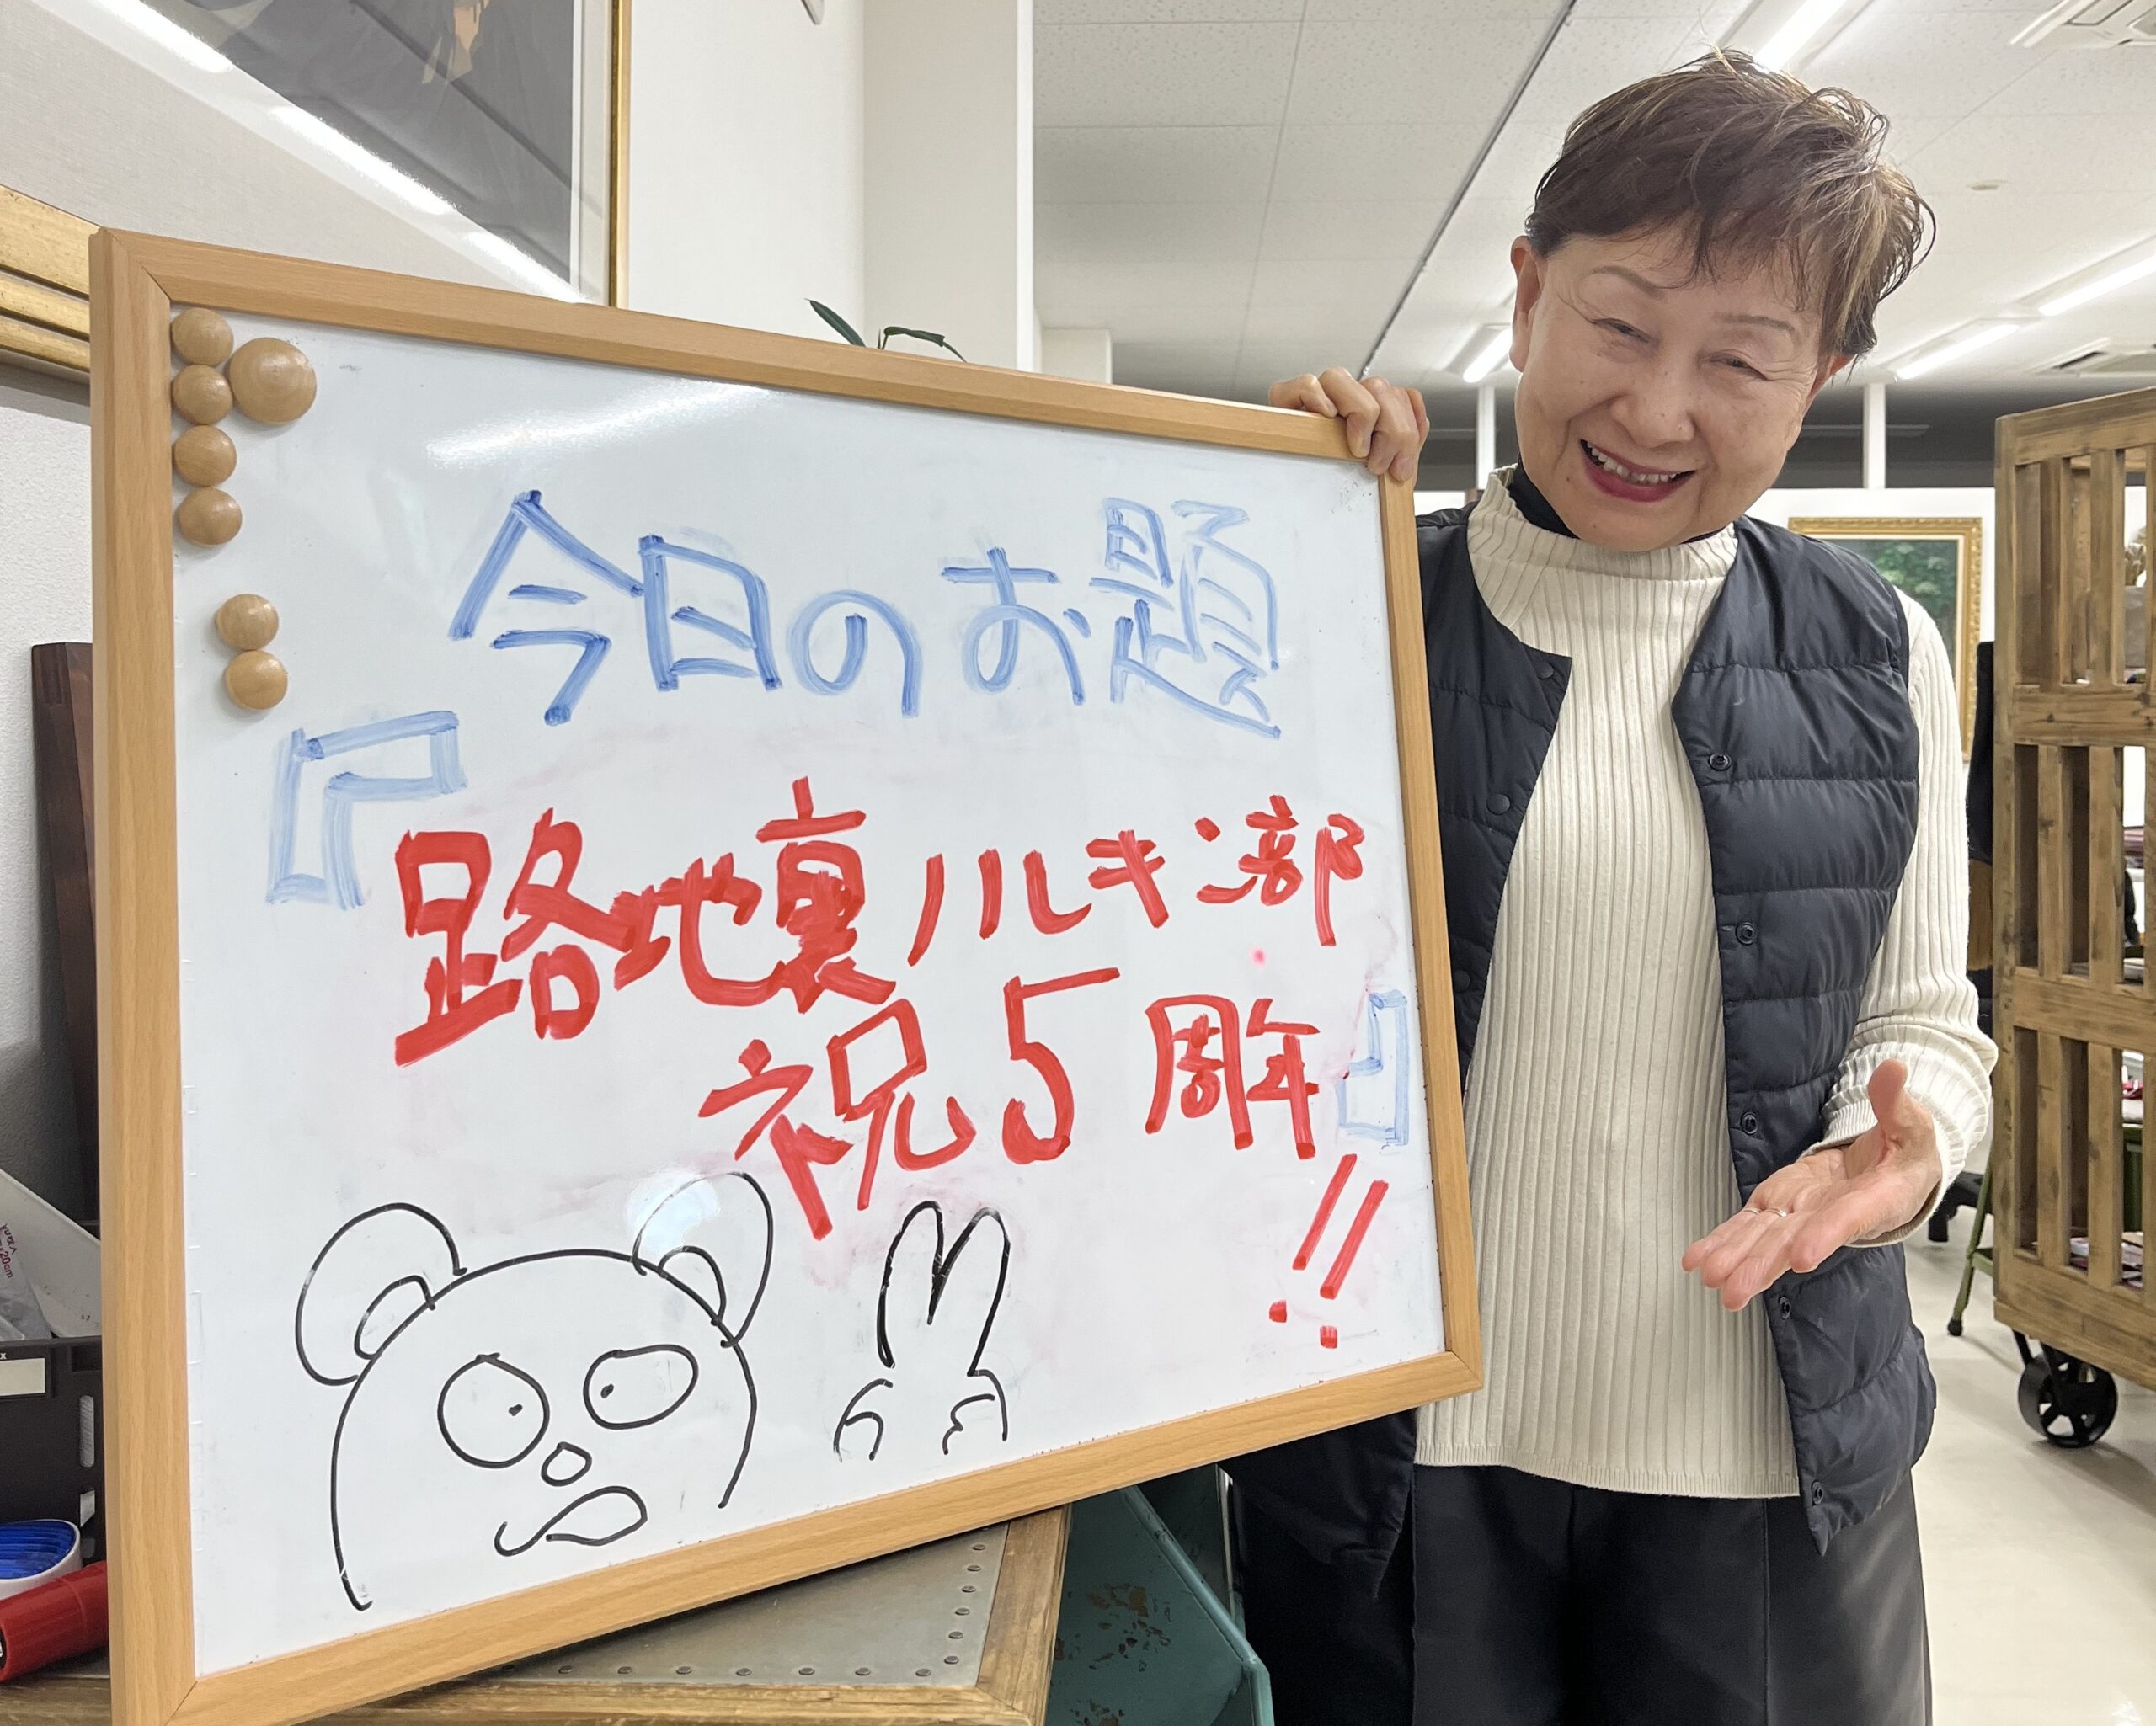 今日のお題
『路地裏ハルキ部
祝5周年』
!!
20cm